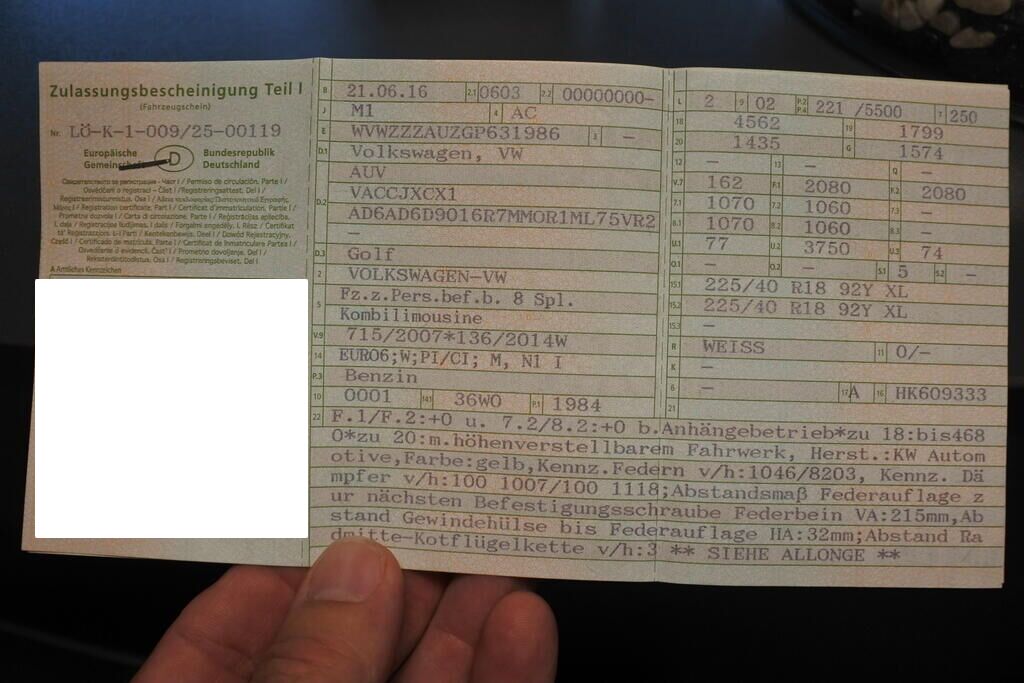 Zulassungsbescheinigung Teil I
(Fahrzeugschein)
Nr. LÖ-K-1-009/25-00119
Europäische Gemeinschaft D Bundesrepublik Deutschland
Permiso de circulación. Parte I /
Osvědčení o registraci – Část I / Registreringsattest. Del I /
Registreerimistunnistus. Osa I /
Registration certificate. Part I / Certificat d'immatriculation. Partie I /
Prometna dozvola / Carta di circolazione. Parte I /
A Amtliches Kennzeichen
B 21.06.16 2.1 0603 2.2 00000000-
J M1 4 AC
E WVWZZZAUZGP631986 3 –
D.1 Volkswagen, VW
AUV
D.2 VACCJXCX1
AD6AD6D9016R7MMOR1ML75VR2
–
D.3 Golf
2 VOLKSWAGEN-VW
5 Fz.z.Pers.bef.b. 8 Spl.
Kombilimousine
V.9 715/2007*136/2014W
14 EURO6;W;PI/CI; M, N1 I
P.3 Benzin
10 0001 14.1 36W0 P.1 1984
L 2 9 02 P.2 P.4 221 /5500 T 250
18 4562 19 1799
20 1435 G 1574
12 – 13 – Q –
V.7 162 F.1 2080 F.2 2080
7.1 1070 7.2 1060 7.3 –
8.1 1070 8.2 1060 8.3 –
U.1 77 U.2 3750 U.3 74
O.1 – O.2 – S.1 5 S.2 –
15.1 225/40 R18 92Y XL
15.2 225/40 R18 92Y XL
15.3 –
R WEISS 11 0/–
K –
6 – 17 A 16 HK609333
21
22 F.1/F.2:+0 u. 7.2/8.2:+0 b.Anhängebetrieb*zu 18:bis468
0*zu 20:m.höhenverstellbarem Fahrwerk, Herst.:KW Autom
otive,Farbe:gelb,Kennz.Federn v/h:1046/8203, Kennz. Dä
mpfer v/h:100 1007/100 1118;Abstandsmaß Federauflage z
ur nächsten Befestigungsschraube Federbein VA:215mm,Ab
stand Gewindehülse bis Federauflage HA:32mm;Abstand Ra
dmitte-Kotflügelkette v/h:3 ** SIEHE ALLONGE **